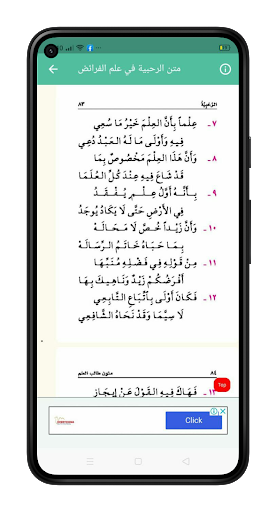 متن الرحبية في علم الفرائض
الرَّحَبِيَّة
٨٣
٧- عِلْماً بِأَنَّ العِلْمَ خَيْرُ مَا سُعِي
فِيهِ وَأَوْلَى مَا لَهُ العَبْدُ دُعِي
٨- وَأَنَّ هَذَا العِلْمَ مَخْصُوصٌ بِمَا
قَدْ شَاعَ فِيهِ عِنْدَ كُلِّ العُلَمَا
٩- بِأَنَّهُ أَوَّلُ عِلْمٍ يُفْقَدُ
فِي الأَرْضِ حَتَّى لَا يَكَادُ يُوجَدُ
١٠- وَأَنَّ زَيْداً خُصَّ لَا مَحَالَهْ
بِمَا حَبَاهُ خَاتَمُ الرِّسَالَهْ
١١- مِنْ قَوْلِهِ فِي فَضْلِهِ مُنَبِّهَا
أَفْرَضُكُمْ زَيْدٌ وَنَاهِيكَ بِهَا
١٢- فَكَانَ أَوْلَى بِاتِّبَاعِ التَّابِعِي
لَا سِيَّمَا وَقَدْ نَحَاهُ الشَّافِعِي
٨٤
متون طالب العلم
١٣- فَهَاكَ فِيهِ القَوْلَ عَنْ إِيجَازِ
Top
Click